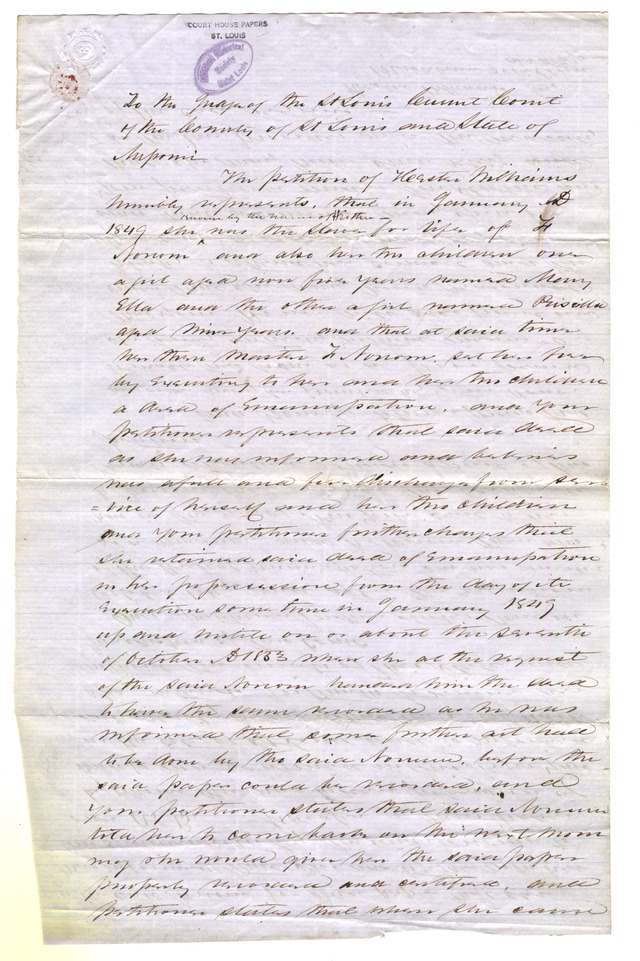 COURT HOUSE PAPERS
ST. LOUIS
Missouri Historical
Society
Saint Louis
To the Judge of the St Louis Circuit Court
of the County of St Louis and State of
Missouri
The petition of Hester Williams
humbly represents, that in January AD
known by the name of Hester
1849 she was the slave for life of F
Norcom and also her two children one
a girl aged now five years named Mary
Ella and the other a girl named Priscilla
aged nine years. and that at said time
her then master F Norcom. set her free
by executing to her and her two children
a deed of Emancipation. and your
petitioner represents that said deed
as she was informed and believes
was a full and free discharge from ser
=vice of herself and her two children
and your petitioner further charges that
she retained said deed of Emancipation
in her possession from the day of its
Execution some time in January 1849
up and until on or about the seventh
of October AD 1853 when she at the request
of the said Norcom handed him the deed
to have the same recorded as he was
informed that some further act had
to be done by the said Norcom, before the
said paper could be recorded, and
your petitioner states that said Norcom
told her to come back on the next morn
ing & he would give her the said paper
properly recorded and certified, and
petitioner states that when she came